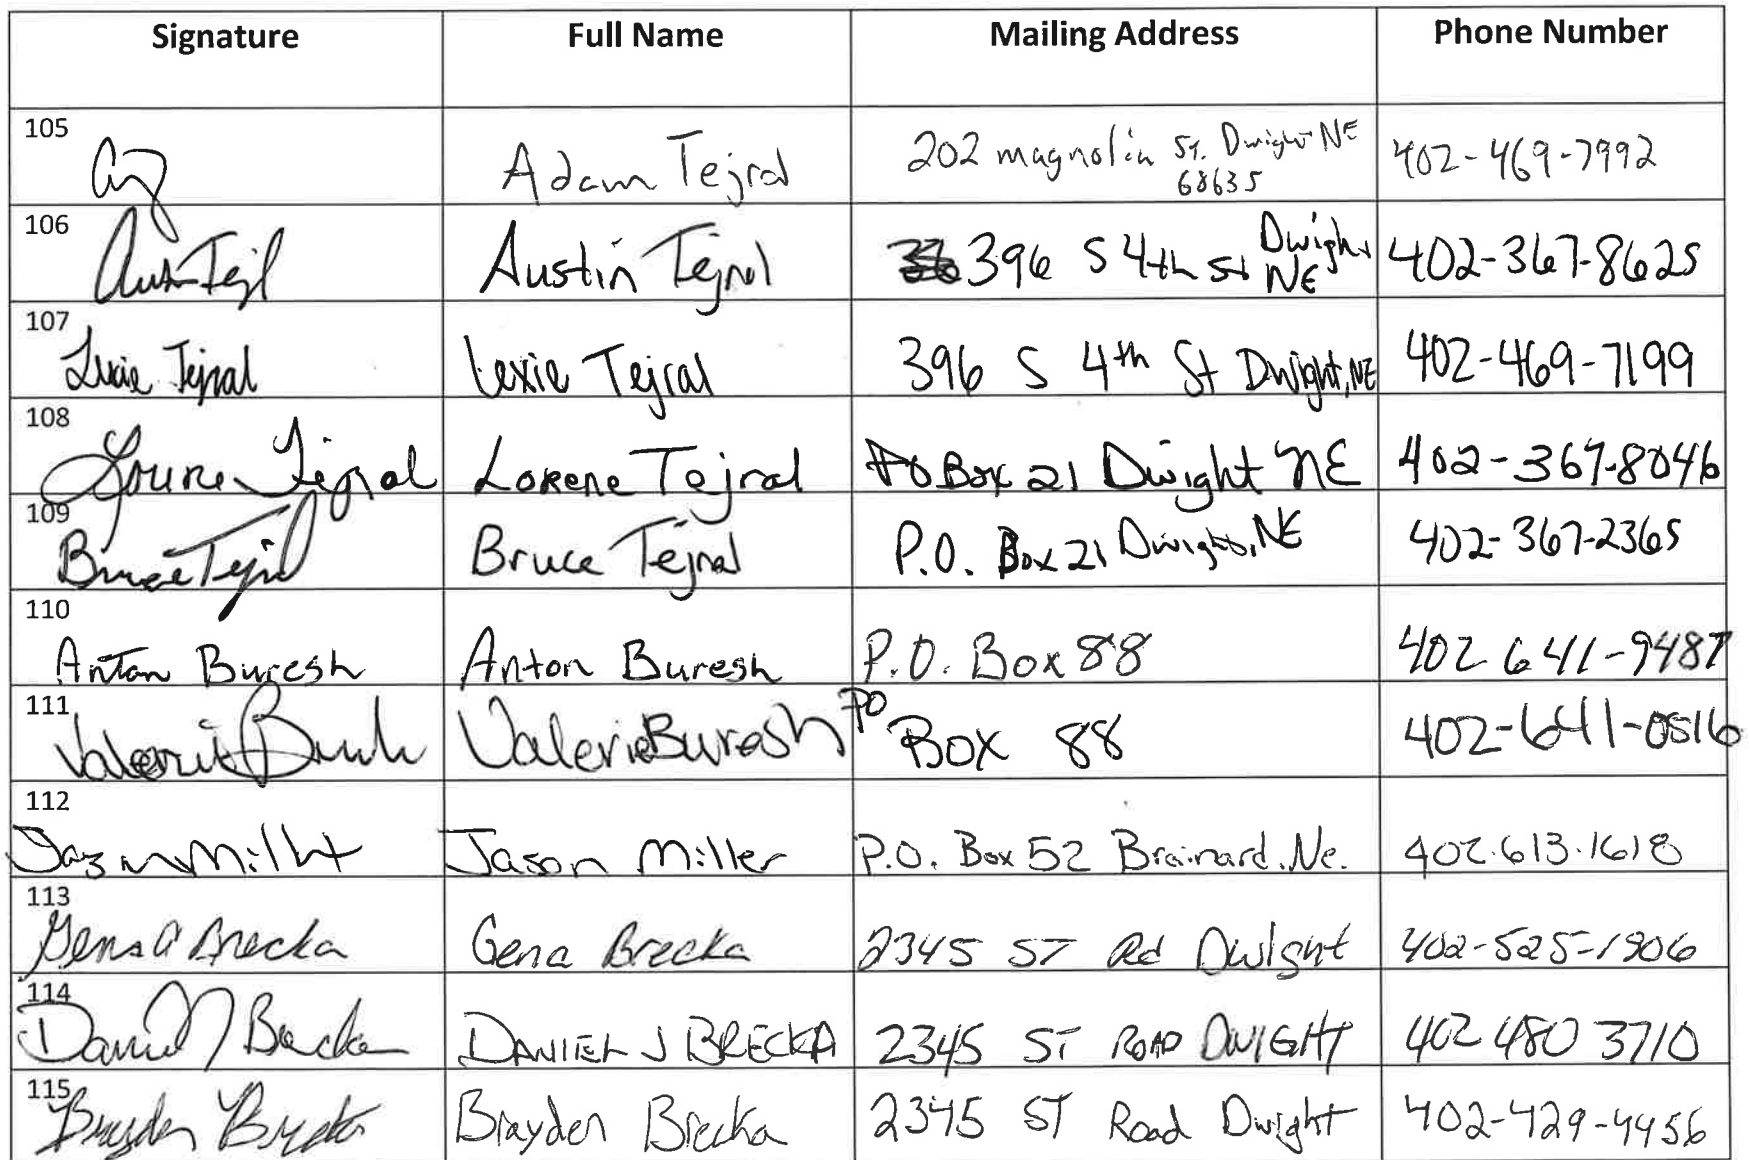 Signature Full Name Mailing Address Phone Number
105 Adam Tejral 202 magnolia St. Dwight NE 68635 402-469-7992
106 Aust Tejl Austin Tejral 396 S 4th St Dwight NE 402-367-8625
107 Lexie Tejral Lexie Tejral 396 S 4th St Dwight, NE 402-469-7199
108 Lorene Tejral Lorene Tejral PO Box 21 Dwight NE 402-367-8046
109 Bruce Tejral Bruce Tejral P.O. Box 21 Dwight, NE 402-367-2365
110 Anton Buresh Anton Buresh P.O. Box 88 402 641-9487
111 Valerie Buresh Valerie Buresh PO Box 88 402-641-0516
112 Jason Miller Jason Miller P.O. Box 52 Brainard. Ne. 402.613.1618
113 Gena A Brecka Gena Brecka 2345 ST Rd Dwight 402-525-1906
114 Daniel J Brecka DANIEL J BRECKA 2345 ST ROAD DWIGHT 402 480 3710
115 Brayden Brecka Brayden Brecka 2345 ST Road Dwight 402-429-4456